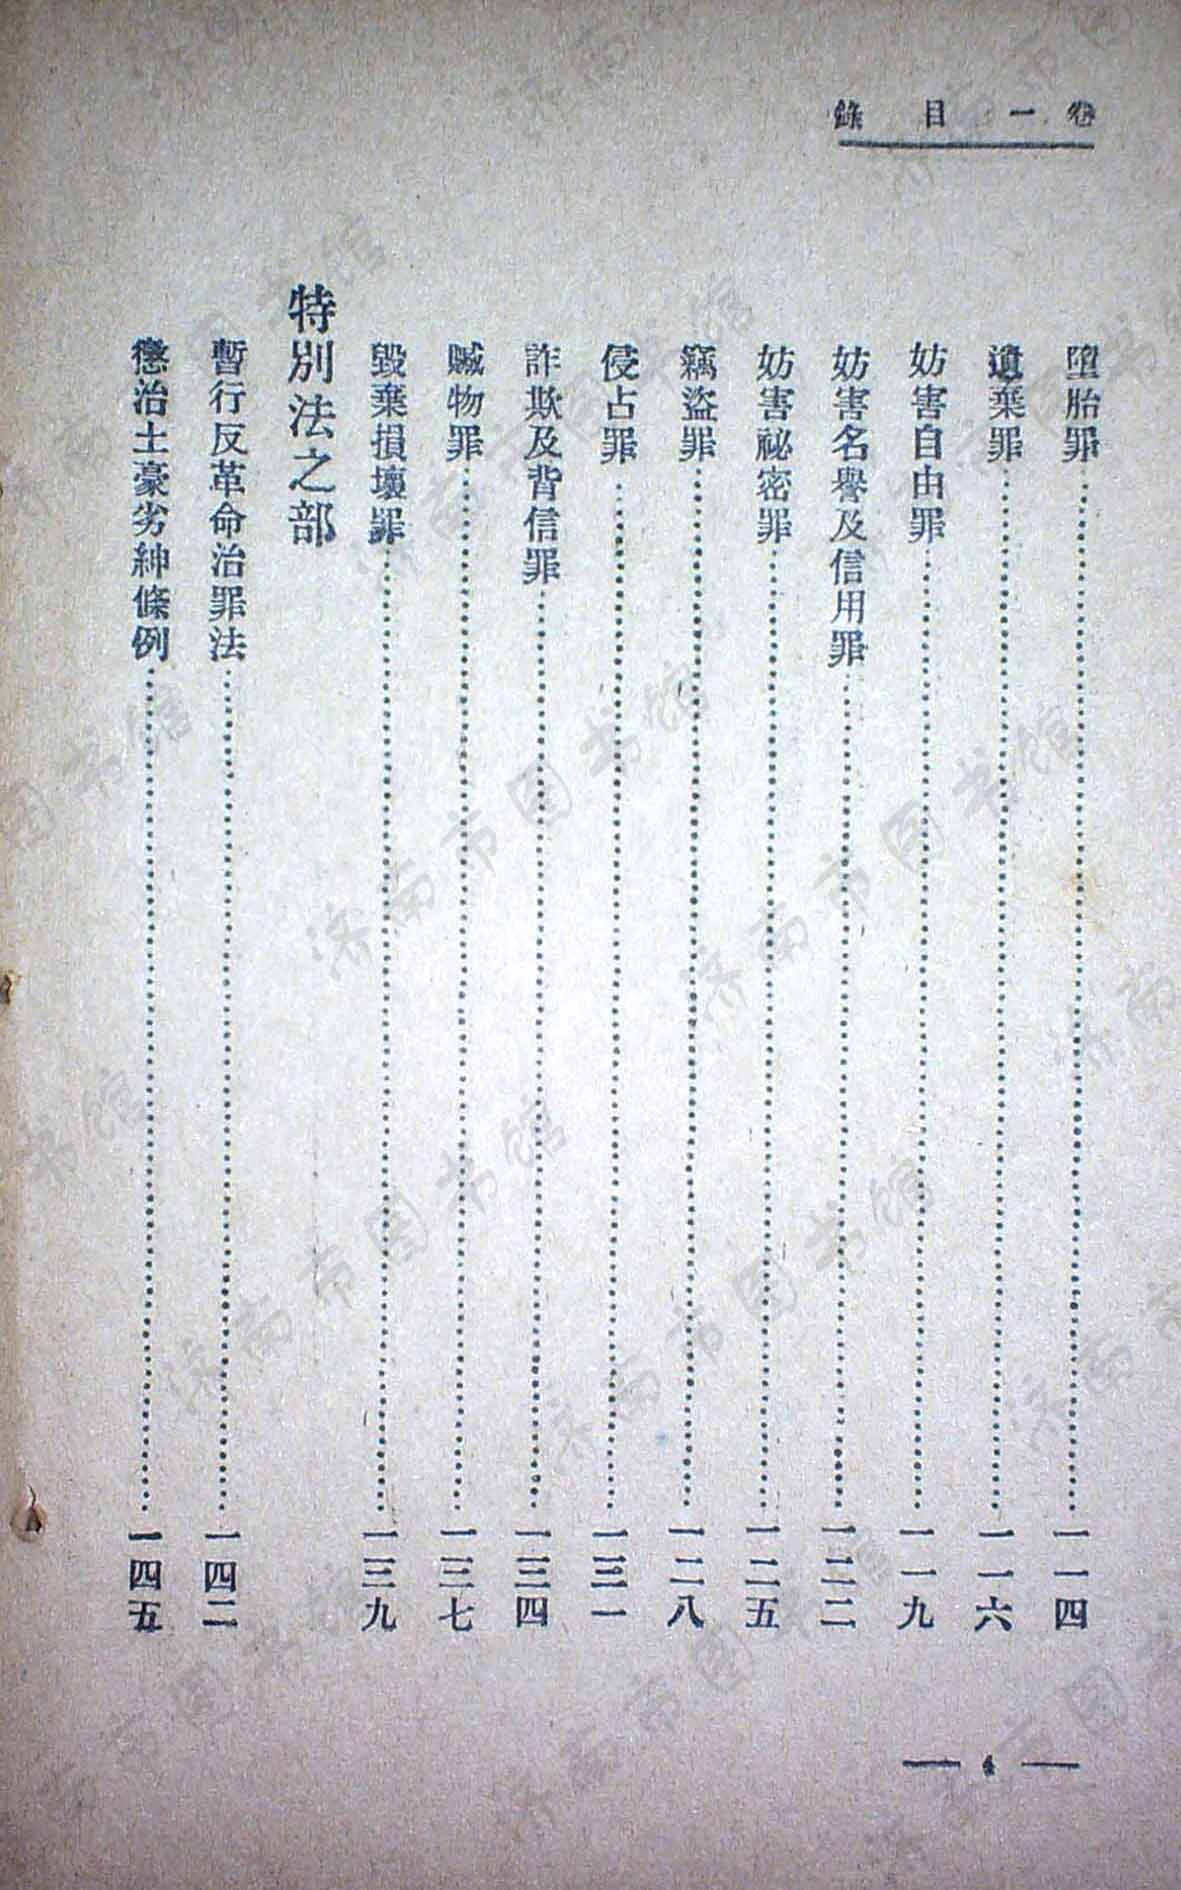 卷一目錄
墮胎罪⋯⋯一一四
遺棄罪⋯⋯一一六
妨害自由罪⋯⋯一一九
妨害名譽及信用罪⋯⋯一二二
妨害祕密罪⋯⋯一二五
竊盜罪⋯⋯一二八
侵占罪⋯⋯一三一
詐欺及背信罪⋯⋯一三四
贓物罪⋯⋯一三七
毀棄損壞罪⋯⋯一三九
特別法之部
暫行反革命治罪法⋯⋯一四二
懲治土豪劣紳條例⋯⋯一四五
— 4 —
济南市图书馆